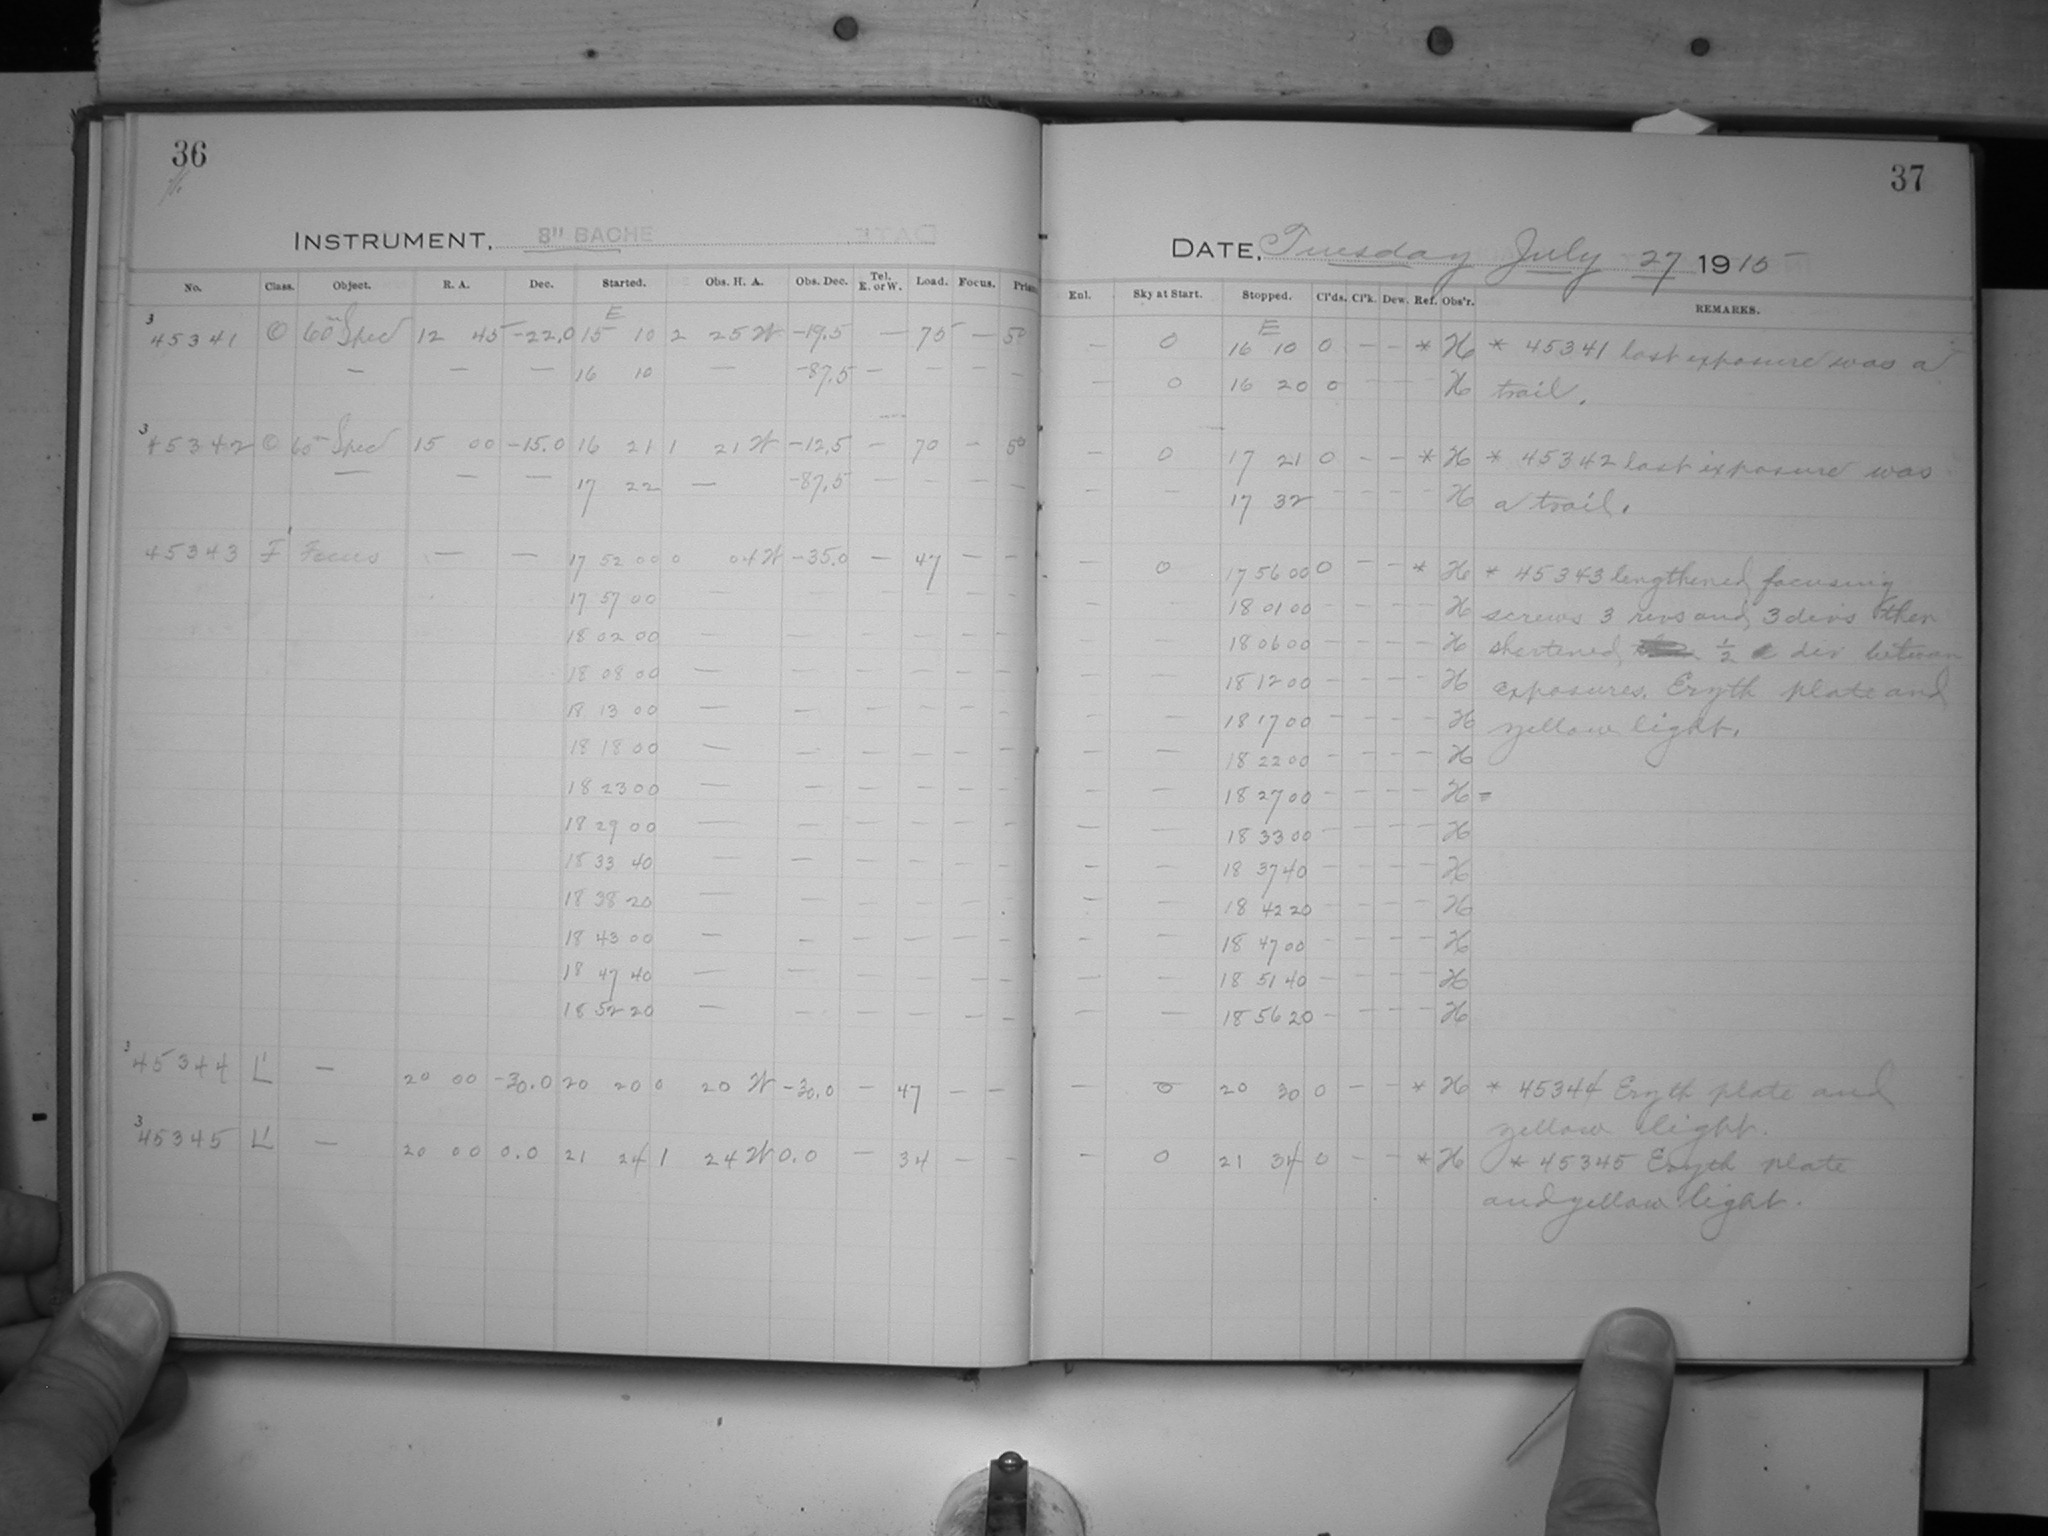 36
INSTRUMENT, 8" BACHE
No. Class. Object. R. A. Dec. Started. Obs. H. A. Obs. Dec. Tel. E. or W. Load. Focus.
E
3 45341 60m Spec 12 45 -22.0 15 10 2 25 W -19.5 — 75 — 5°
— — — 16 10 — -87.5 — — — —
3 45342 Spec 15 00 -15.0 16 21 1 21 W -12.5 — 70 — 5°
— — — 17 22 — -87.5 — — — —
45343 F' Focus — — 17 52 00 0 04 W -35.0 — 47 — —
17 57 00 — — — — — —
18 02 00 — — — — — —
18 08 00 — — — — — —
18 13 00 — — — — — —
18 18 00 — — — — — —
18 23 00 — — — — — —
18 29 00 — — — — — —
18 33 40 — — — — — —
18 38 20 — — — — — —
18 43 00 — — — — — —
18 47 40 — — — — — —
18 52 20 — — — — — —
3 45344 L' — 20 00 -30.0 20 20 0 20 W -30.0 — 47 — —
3 45345 L' — 20 00 0.0 21 24 1 24 W 0.0 — 34 — —
37
DATE, Tuesday July 27 1915
Enl. Sky at Start. Stopped. Cl'ds. Cl'k. Dew. Ref. Obs'r. REMARKS.
E
— 0 16 10 0 — — * H * 45341 last exposure was a
— 0 16 20 0 — — — H trail.
— 0 17 21 0 — — * H * 45342 last exposure was
— — 17 32 — — — — H a trail.
— 0 17 56 00 0 — — * H * 45343 lengthened focusing
— — 18 01 00 — — — — H screws 3 revs and 3 divs then
— — 18 06 00 — — — — H shortened 1/2 div between
— — 18 12 00 — — — — H exposures. Eryth plate and
— — 18 17 00 — — — — H yellow light.
— — 18 22 00 — — — — H
— — 18 27 00 — — — — H
— — 18 33 00 — — — — H
— — 18 37 40 — — — — H
— — 18 42 20 — — — — H
— — 18 47 00 — — — — H
— — 18 51 40 — — — — H
— — 18 56 20 — — — — H
— 0 20 30 0 — — * H * 45344 Eryth plate and
yellow light.
— 0 21 34 0 — — * H * 45345 Eryth plate
and yellow light.